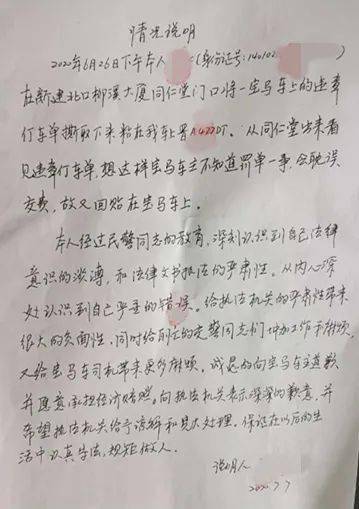 情况说明
2020年6月26日下午本人 (身份证号:140102
在新建北口柳溪大厦同仁堂门口将一宝马车上的违章
打车单撕取下来粘在我车上晋A477DT。从同仁堂出来看
见违章打车单,想这样宝马车主不知道罚单一事,会耽误
交费,故又回贴在宝马车上。
本人经过民警同志的教育,深刻认识到自己法律
意识的淡薄,和法律文书执法的严肃性。从内心深
处认识到自己严重的错误。给执法机关的严肃性带来
很大的负面性,同时给别的交警同志们增加工作麻烦,
又给宝马车司机带来更多麻烦。诚恳的向宝马车主道歉
并愿意承担经济赔偿。向执法机关表示深深的歉意,并
希望执法机关给予谅解和宽大处理。保证在以后的生
活中认真守法,规矩做人。
说明人
2020.7.7